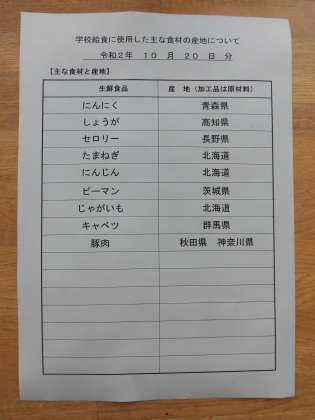 学校給食に使用した主な食材の産地について
令和2年 10 月 20 日 分
【主な食材と産地】
生鮮食品 産 地（加工品は原材料）
にんにく 青森県
しょうが 高知県
セロリー 長野県
たまねぎ 北海道
にんじん 北海道
ピーマン 茨城県
じゃがいも 北海道
キャベツ 群馬県
豚肉 秋田県 神奈川県